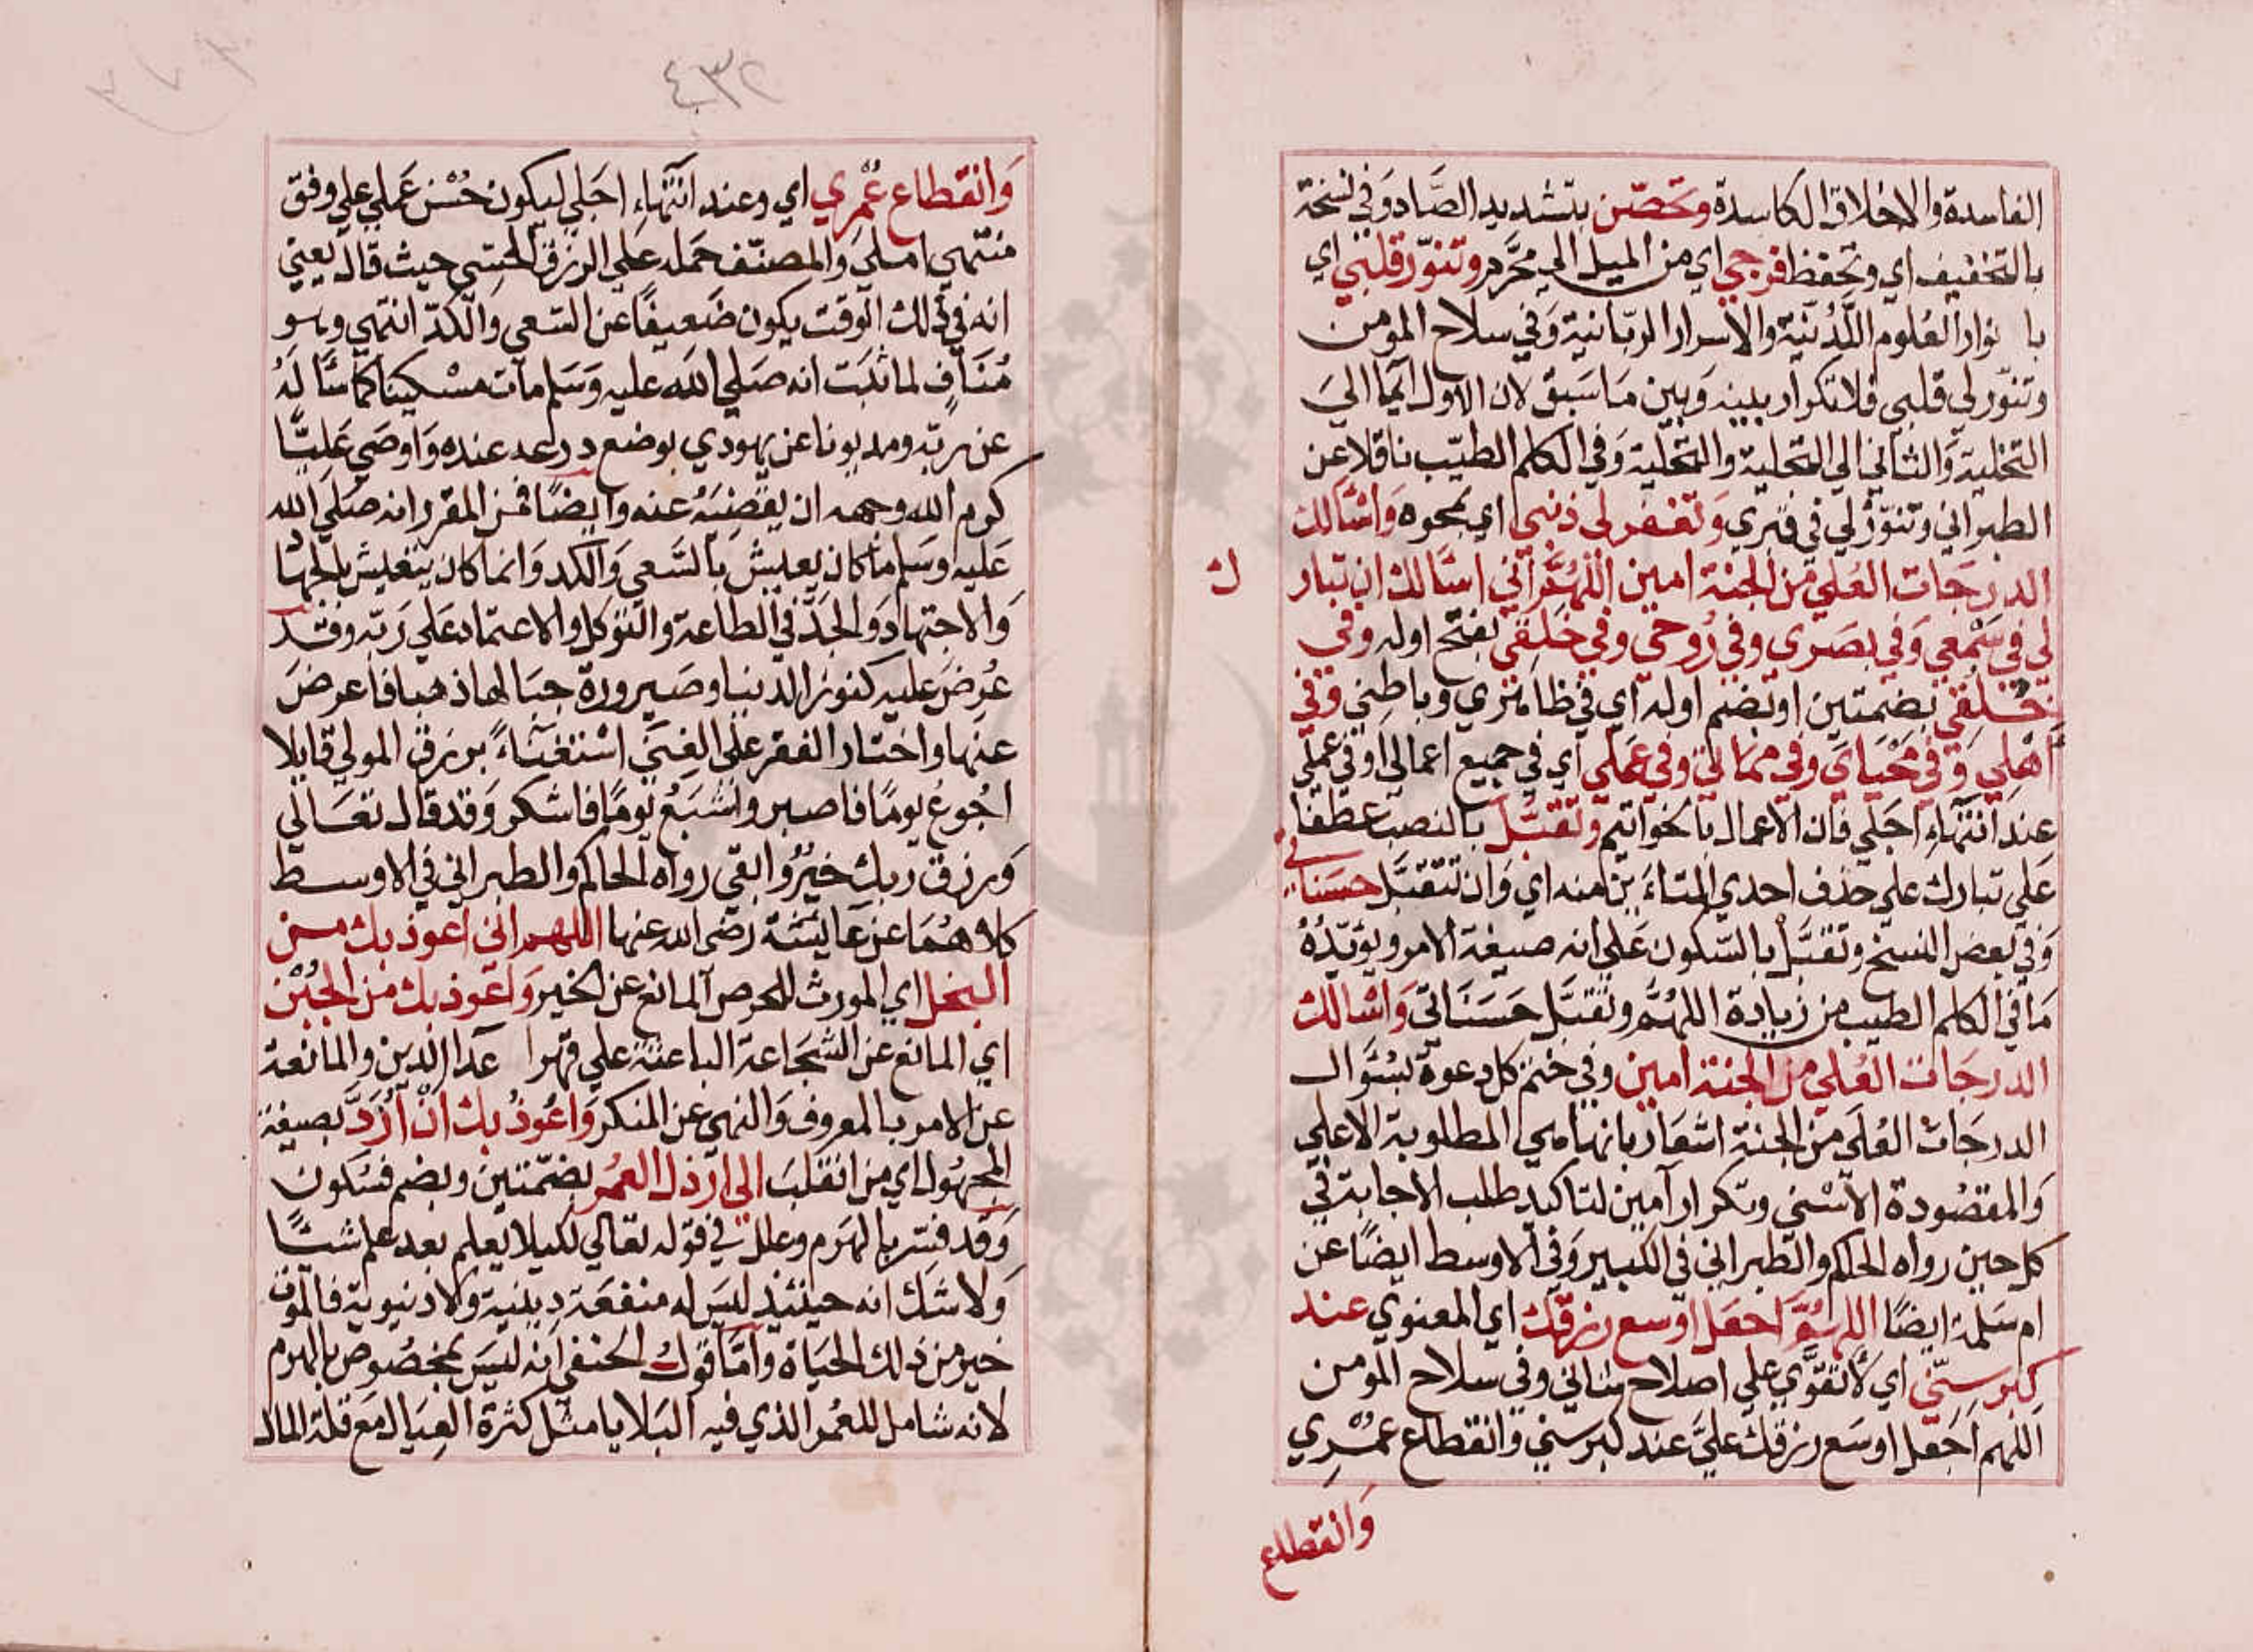 الفاسدة والاخلاق الكاسدة وتحصّن بتشديد الصَّاد وَفي نسخة
بالتخفيف اي وتحفظ فرجي اي من الميل الي محَرَّم وتنوّر قلبي اي
با نوار العُلوم اللَّدُنّيَة والاسرار الربّانية وَفي سلاح المومن
وتنوّر لي قلبي فلا تكرار بينه وَبين مَا سَبق لان الاول ايمَا اليَ
التخلية وَالثاني الي التحلية والتجلية وَفي الكلم الطيّب ناقلا عن
الطبراني وتنوّرُ لي في قبري وَتغفر لي ذنبي اي بمحوه وَاسْالك
الدرَجَات العُلي من الجنة امين اللهُمَّ اني اسَالك ان تبارك
لي في سَمْعي وَفي بصَري وفي رُوحي وفي خَلقي بفتح اوله وفي
خُلقي بضمتين او بضم اوله اي في ظاهري وباطني وَفي
اَهْلي وَفي مَحْيَايَ وفي ممَاتي وفي عَملي اي في جميع اعمالي او في عملي
عندَ انتهَاءِ اجَلي فان الاعمال بالخواتيم وتقبّل بالنصب عطفًا
عَلي تبارك علي حذف احدي المتاءَين منه اي وَان تتقبَّل حسَناتي
وَفي بعض النسخ وتقبَّلْ بالسّكون عَلي انه صيغة الامر ويؤيّدُهُ
مَا في الكلم الطيب من زيادة اللهُمَّ وتقبَّل حَسَنَاتي وَاسْالك
الدرجَات العُلي من الجنة امين وفي ختم كل دعوة بسُؤال
الدرجَات العُلَي من الجنة اشعَار بانها هي المطلوبة الاعلي
وَالمقصُودة الاسْني وتكرار آمين لتاكيد طلب الاجابة في
كل حين رواه الحاكم والطبراني في الكبير وَفي الاوسط ايضًا عن
ام سَلمة ايضًا اللهُمَّ اجعَل اوسع رزقك اي المعنوي عند
كبر سنّي اي لاتقوَّي علي اصلاح شاني وفي سلاح المومن
اللهم اجَعل اوسَع رزقك عليَّ عند كبر سني وَانقطاع عمُرْي
وَانقطاع
٤٣٢
وَانقطاع عُمْري اي وعند انتهَاءِ اجَلي ليكون حُسْن عَملي علي وفق
منتهي املي وَالمصنّف حَمله علي الرزق الحسّي حيث قال يعني
انه في ذلك الوقت يكون ضَعيفًا عن السّعي وَالكدّ انتهي وهو
مُنَافٍ لما ثبَت انه صَلي الله عليه وَسَلم مات مسْكينا كما سَالهُ
عن رَبّه ومديونا عن يهودي بوضع درعه عنده وَاوصَي عَليًّا
كرم الله وجهه ان يقضيَهُ عنه وايضًا فمن المقرر انه صَلي الله
عَليه وَسَلم ما كان يعيش بالسَّعي وَالكد وَانما كان يتعيش بالجهَاد
وَالاجتهاد وَالجَدّ في الطاعة والتوكل والاعتماد عَلي رَبّه وقد
عُرضَ عليه كنوز الدنيا وصَيرورة جبَالها ذهبا فاعرضَ
عنهَا واختار الفقر علي الغنَي اسْتغنَاءً برزق المولي قايلا
اجُوعُ يومًا فاصبر واشبَعُ يومًا فاشكر وَقد قال تعَالي
وَرزق ربك خيرٌ وابقي رواه الحاكم والطبراني في الاوسط
كلاهُمَا عن عَايشة رَضي الله عنها اللهم اني اعوذ بك من
البخل اي المورث للحرص المانع عن الخير وَاعوذ بك من الجُبْن
اي المانع عن الشجَاعة الباعثة علي قهر اعدا الدين والمانعة
عن الامر بالمعروف وَالنهي عن المنكر وَاعُوذ بك انْ اُرَدَّ بصيغة
المجهُول اي من انقلبَ الي ارذل العمُر بضمّتين وبضم فسُكون
وَقد فسّر بالهَرَم وعلل في قوله تعَالي لكيلا يعلم بعد علم شيئًا
وَلا شك انه حينئذٍ ليسَ له منفعَة دِينية وَلا دنيوية فالموت
خير من ذلك الحيَاة وامّا قول الحنفي انه ليسَ بمخصُوص بالهرم
لانه شامل للعُمر الذي فيه البَلايا مثل كثرة العِيَال مَع قلة المال